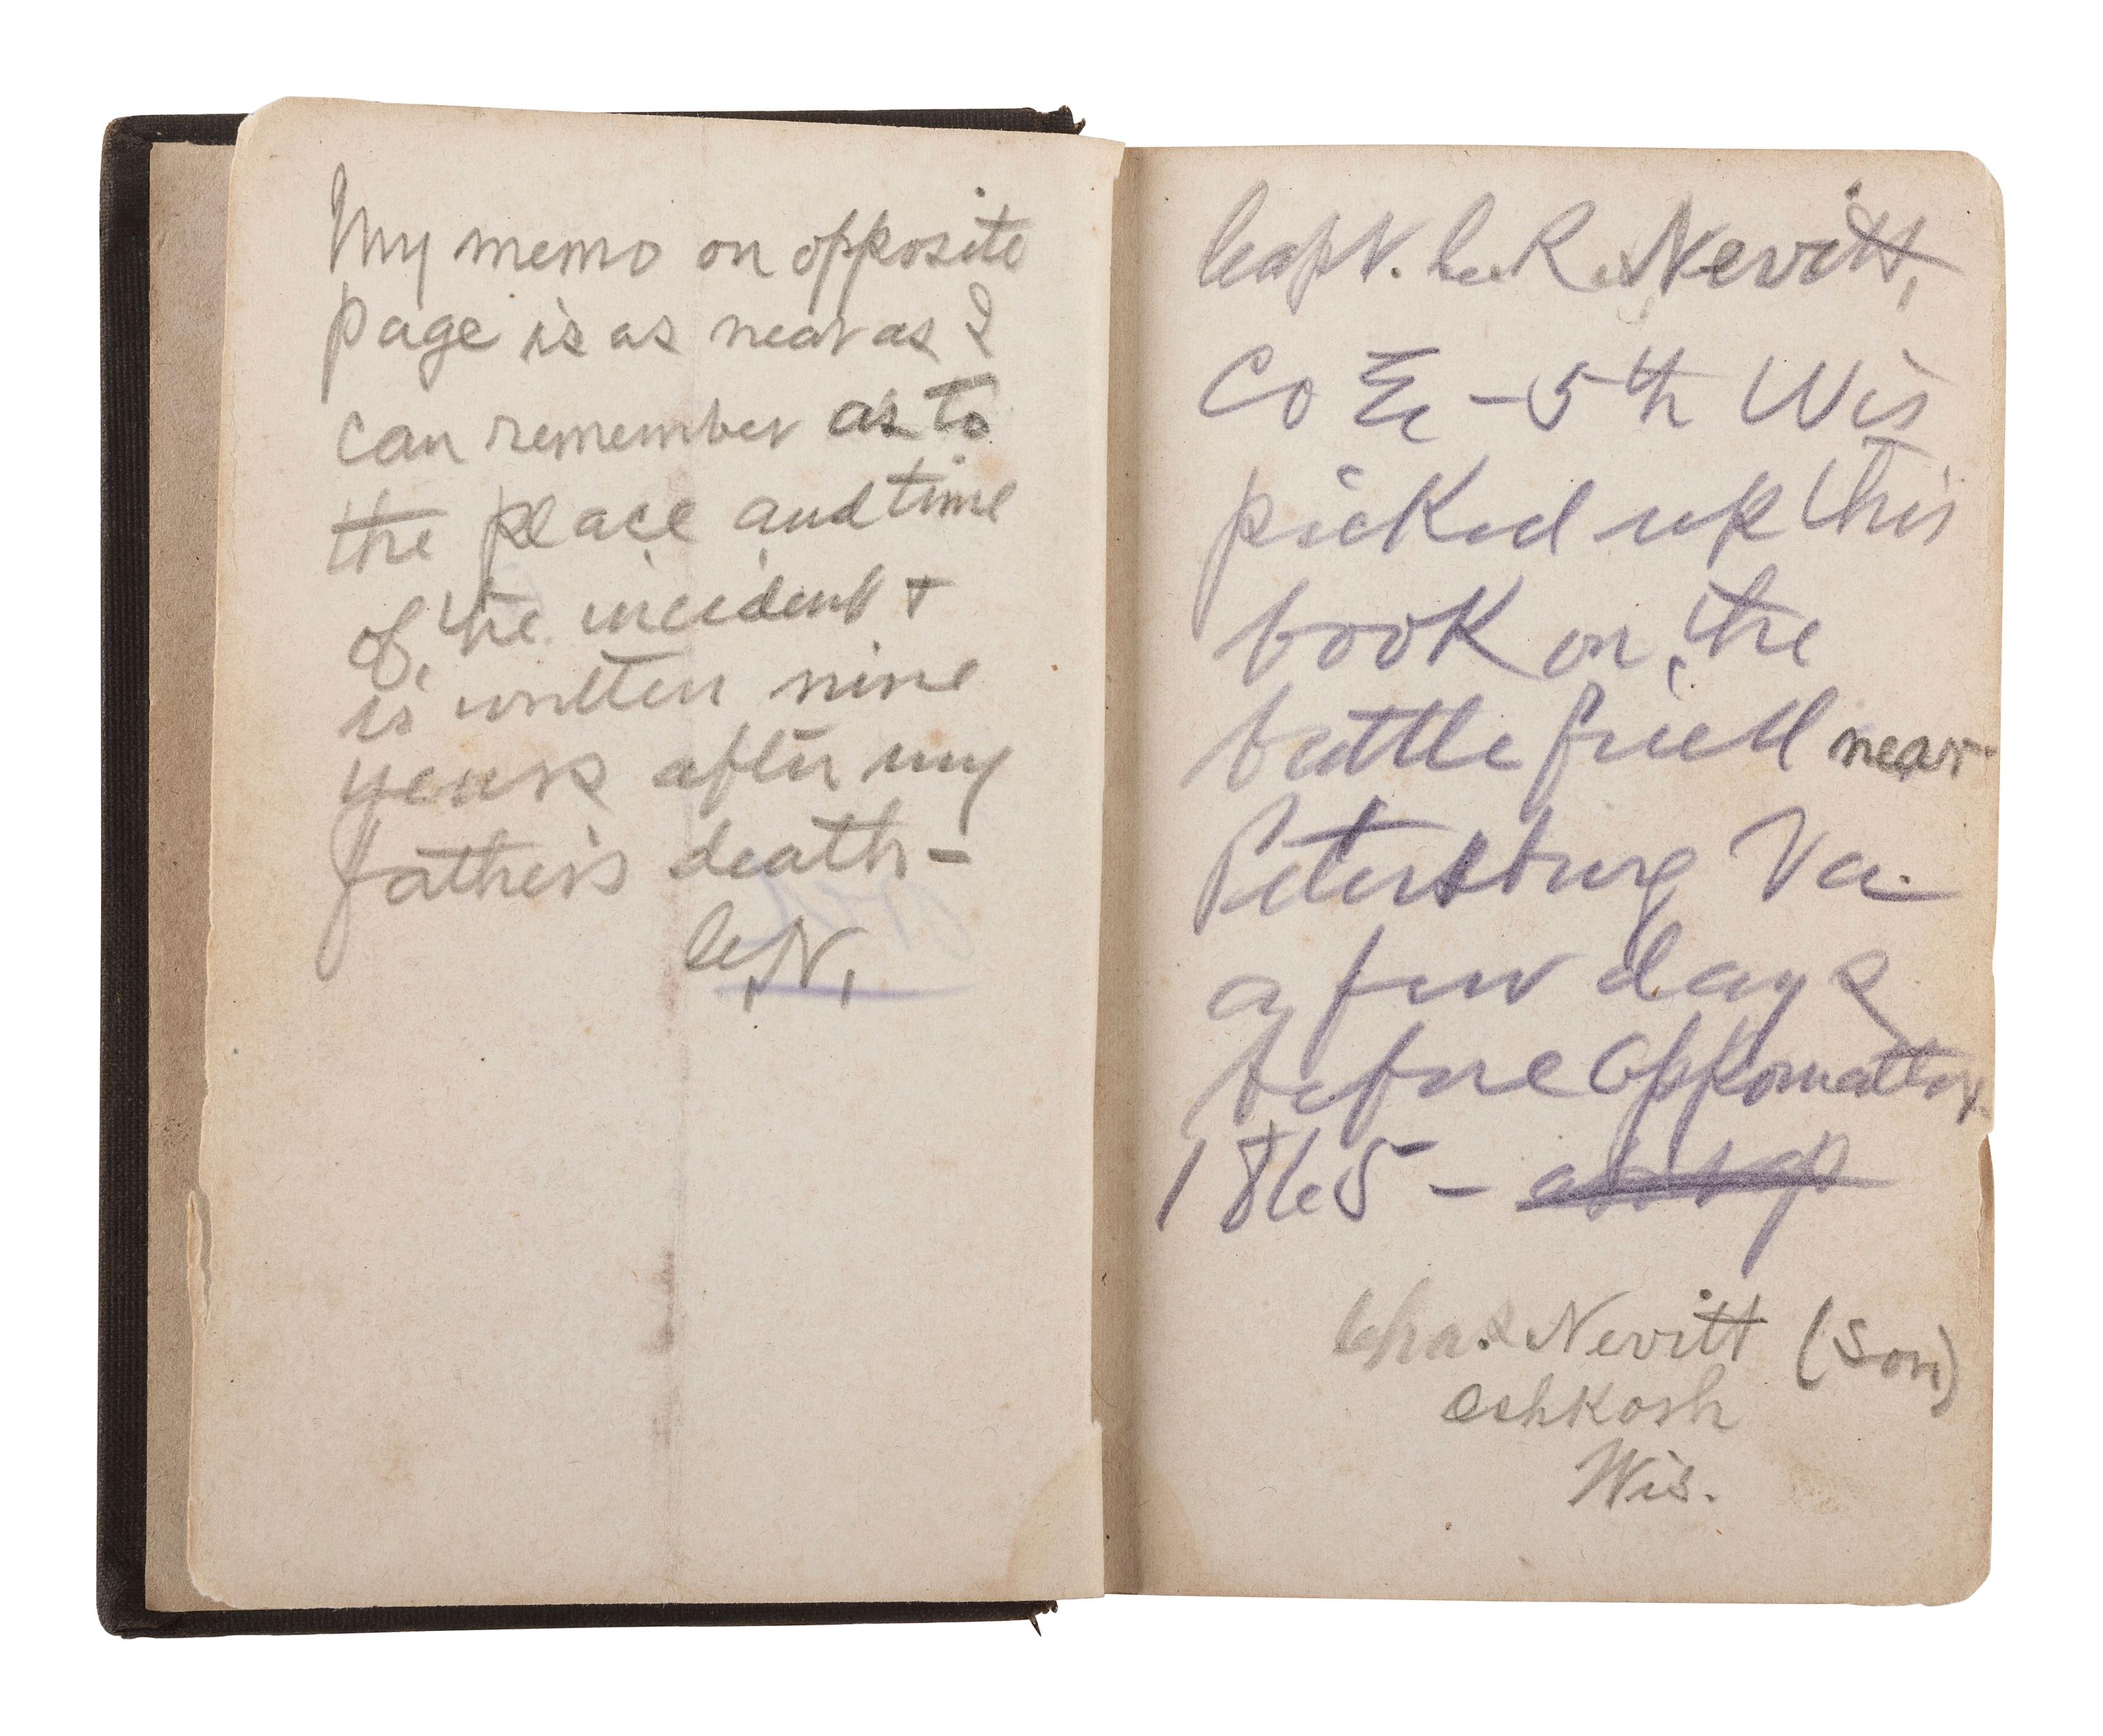 My memo on opposite
page is as near as I
can remember as to
the place and time
of the incident +
is written nine
years after my
father's death -
C.N.
Capt. C. R. Nevitt,
Co E - 5th Wis
picked up this
book on the
battle field near
Petersburg Va.
a few days
before Appomattox
1865 -
Chas Nevitt (Son)
Oshkosh
Wis.